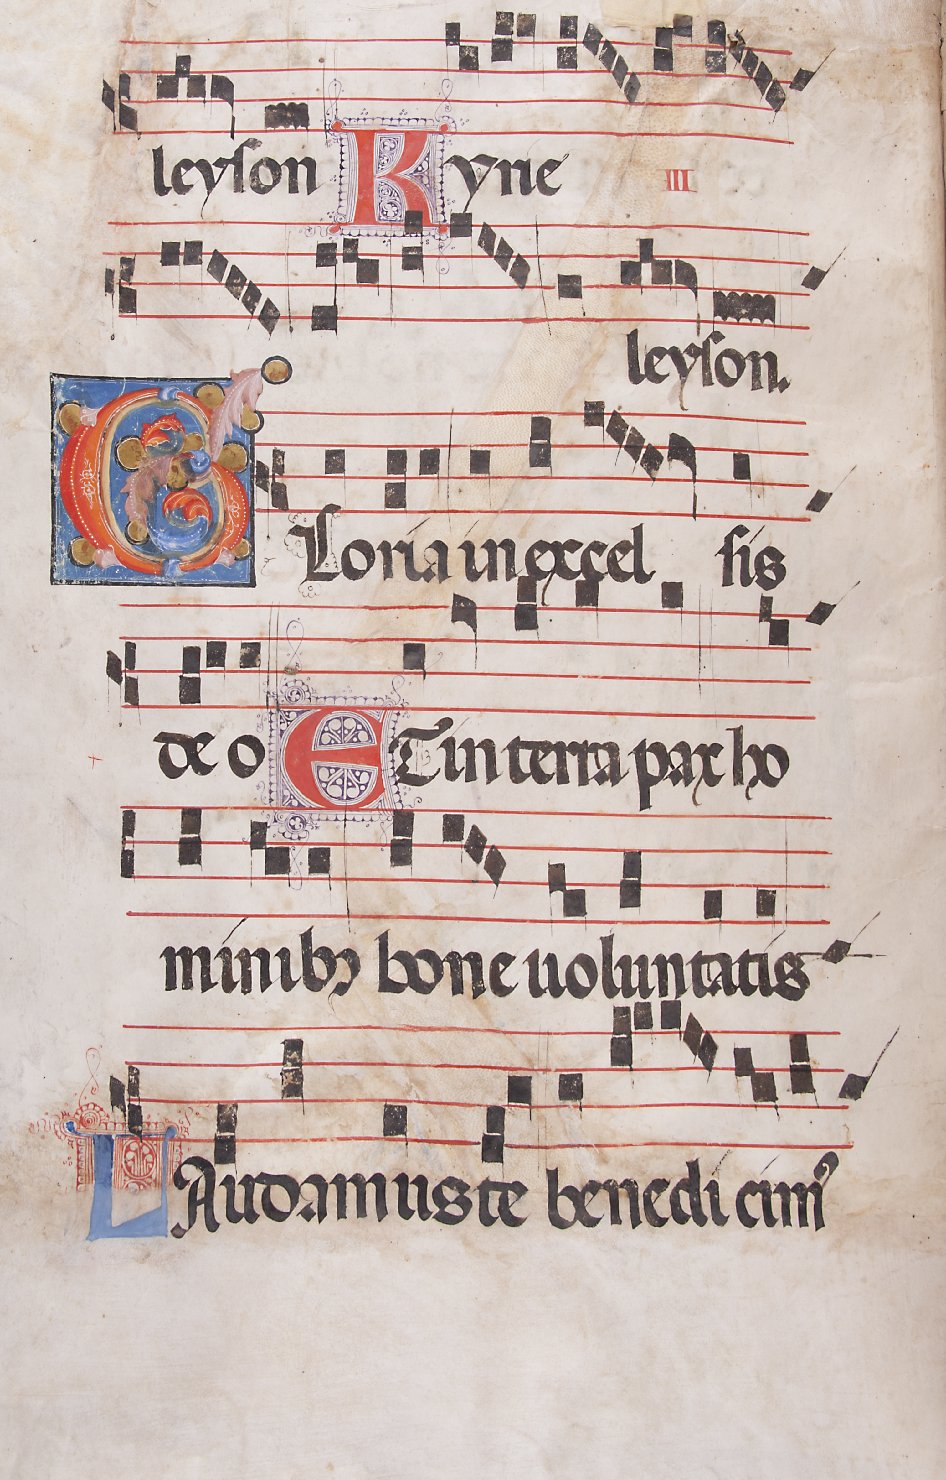 leyson Kyne III
leyson.
Gloria in excel sis
de o Et in terra pax ho
minibꝫ bone uoluntatis
Laudamus te benedicimꝰ